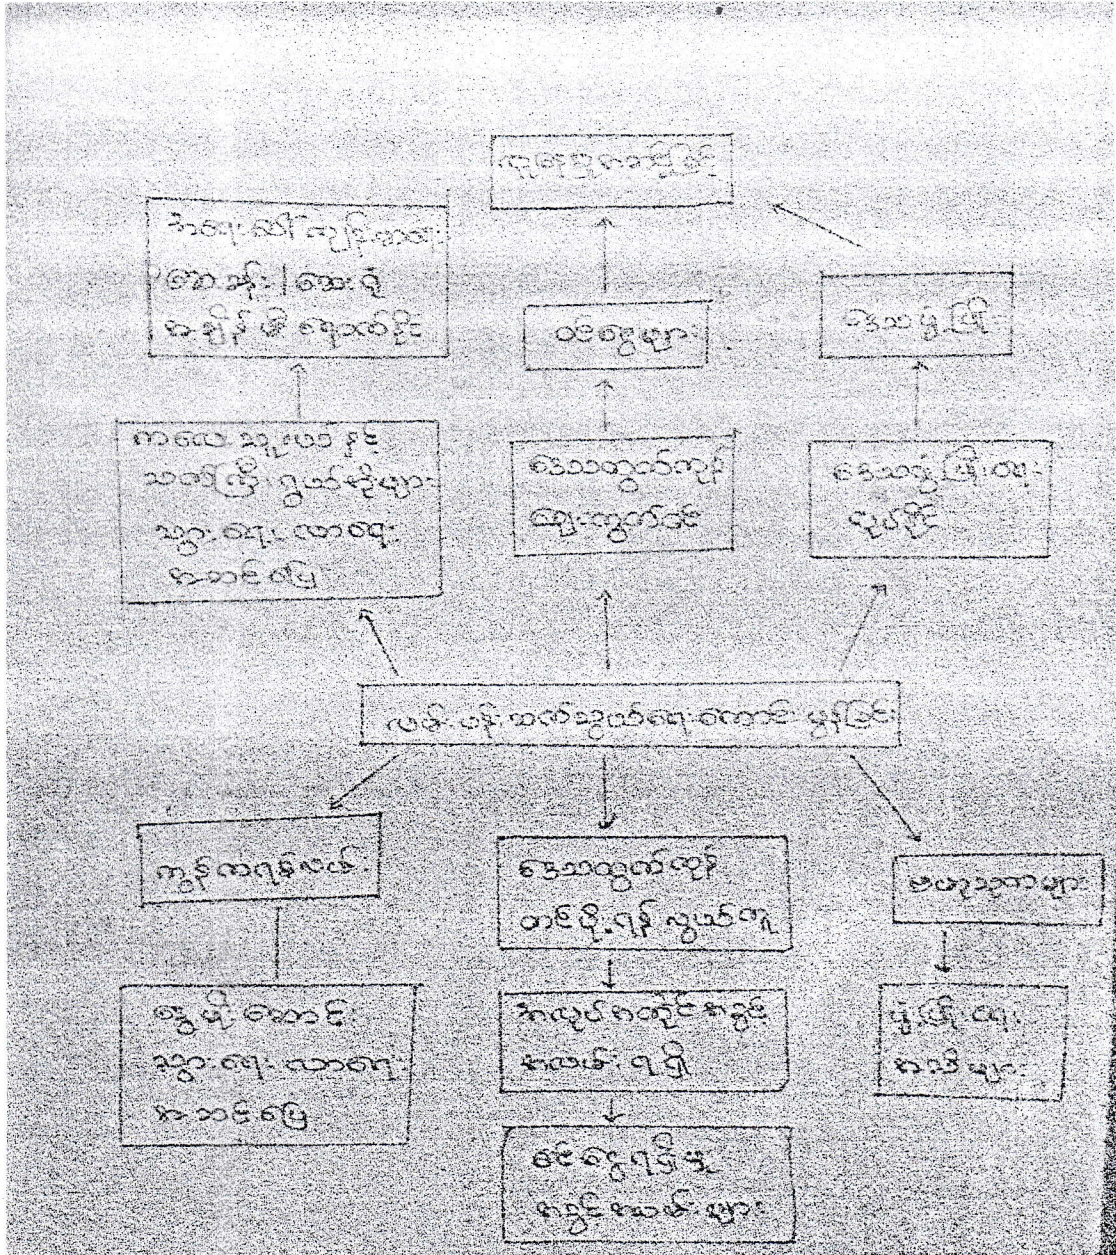 လူနေမှုအဆင့်မြင့်
အရေးပေါ်ကျန်းမာရေး
ဆေးခန်း/ဆေးရုံ
အချိန်မီရောက်နိုင်
ဝင်ငွေများ
ဒေသဖွံ့ဖြိုး
ကလေးသူငယ်နှင့်
သက်ကြီးရွယ်အိုများ
သွားရေးလာရေး
အဆင်ပြေ
ဒေသထွက်ကုန်
ဈေးကွက်ဝင်
ဒေသဖွံ့ဖြိုးရေး
လုပ်နိုင်
လမ်းပန်းဆက်သွယ်ရေးကောင်းမွန်ခြင်း
ကွန်ကရစ်လမ်း
ဒေသထွက်ကုန်
တင်ပို့ရန်လွယ်ကူ
ဗဟုသုတများ
နွေမိုးဆောင်း
သွားရေးလာရေး
အဆင်ပြေ
အလုပ်အကိုင်အခွင့်
အလမ်းရရှိ
ဖွံ့ဖြိုးရေး
အသိများ
ဝင်ငွေရရှိမှု
အခွင့်အလမ်းများ